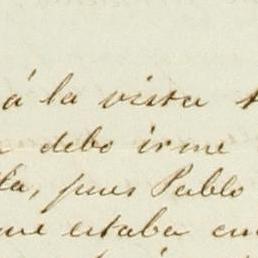 á la vista
debo irme
pues Pablo
estaba